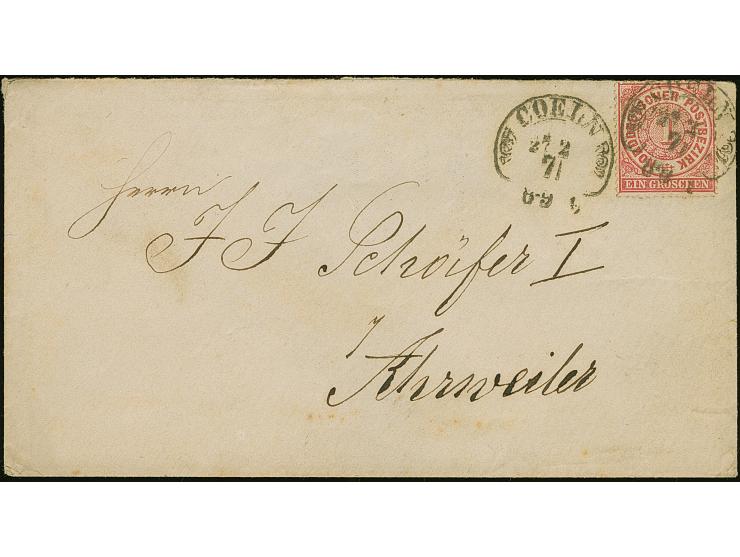 COELN
27 2
71
NORDDEUTSCHER POSTBEZIRK
EIN GROSCHEN
Herrn
J J Schäfer I
Ahrweiler